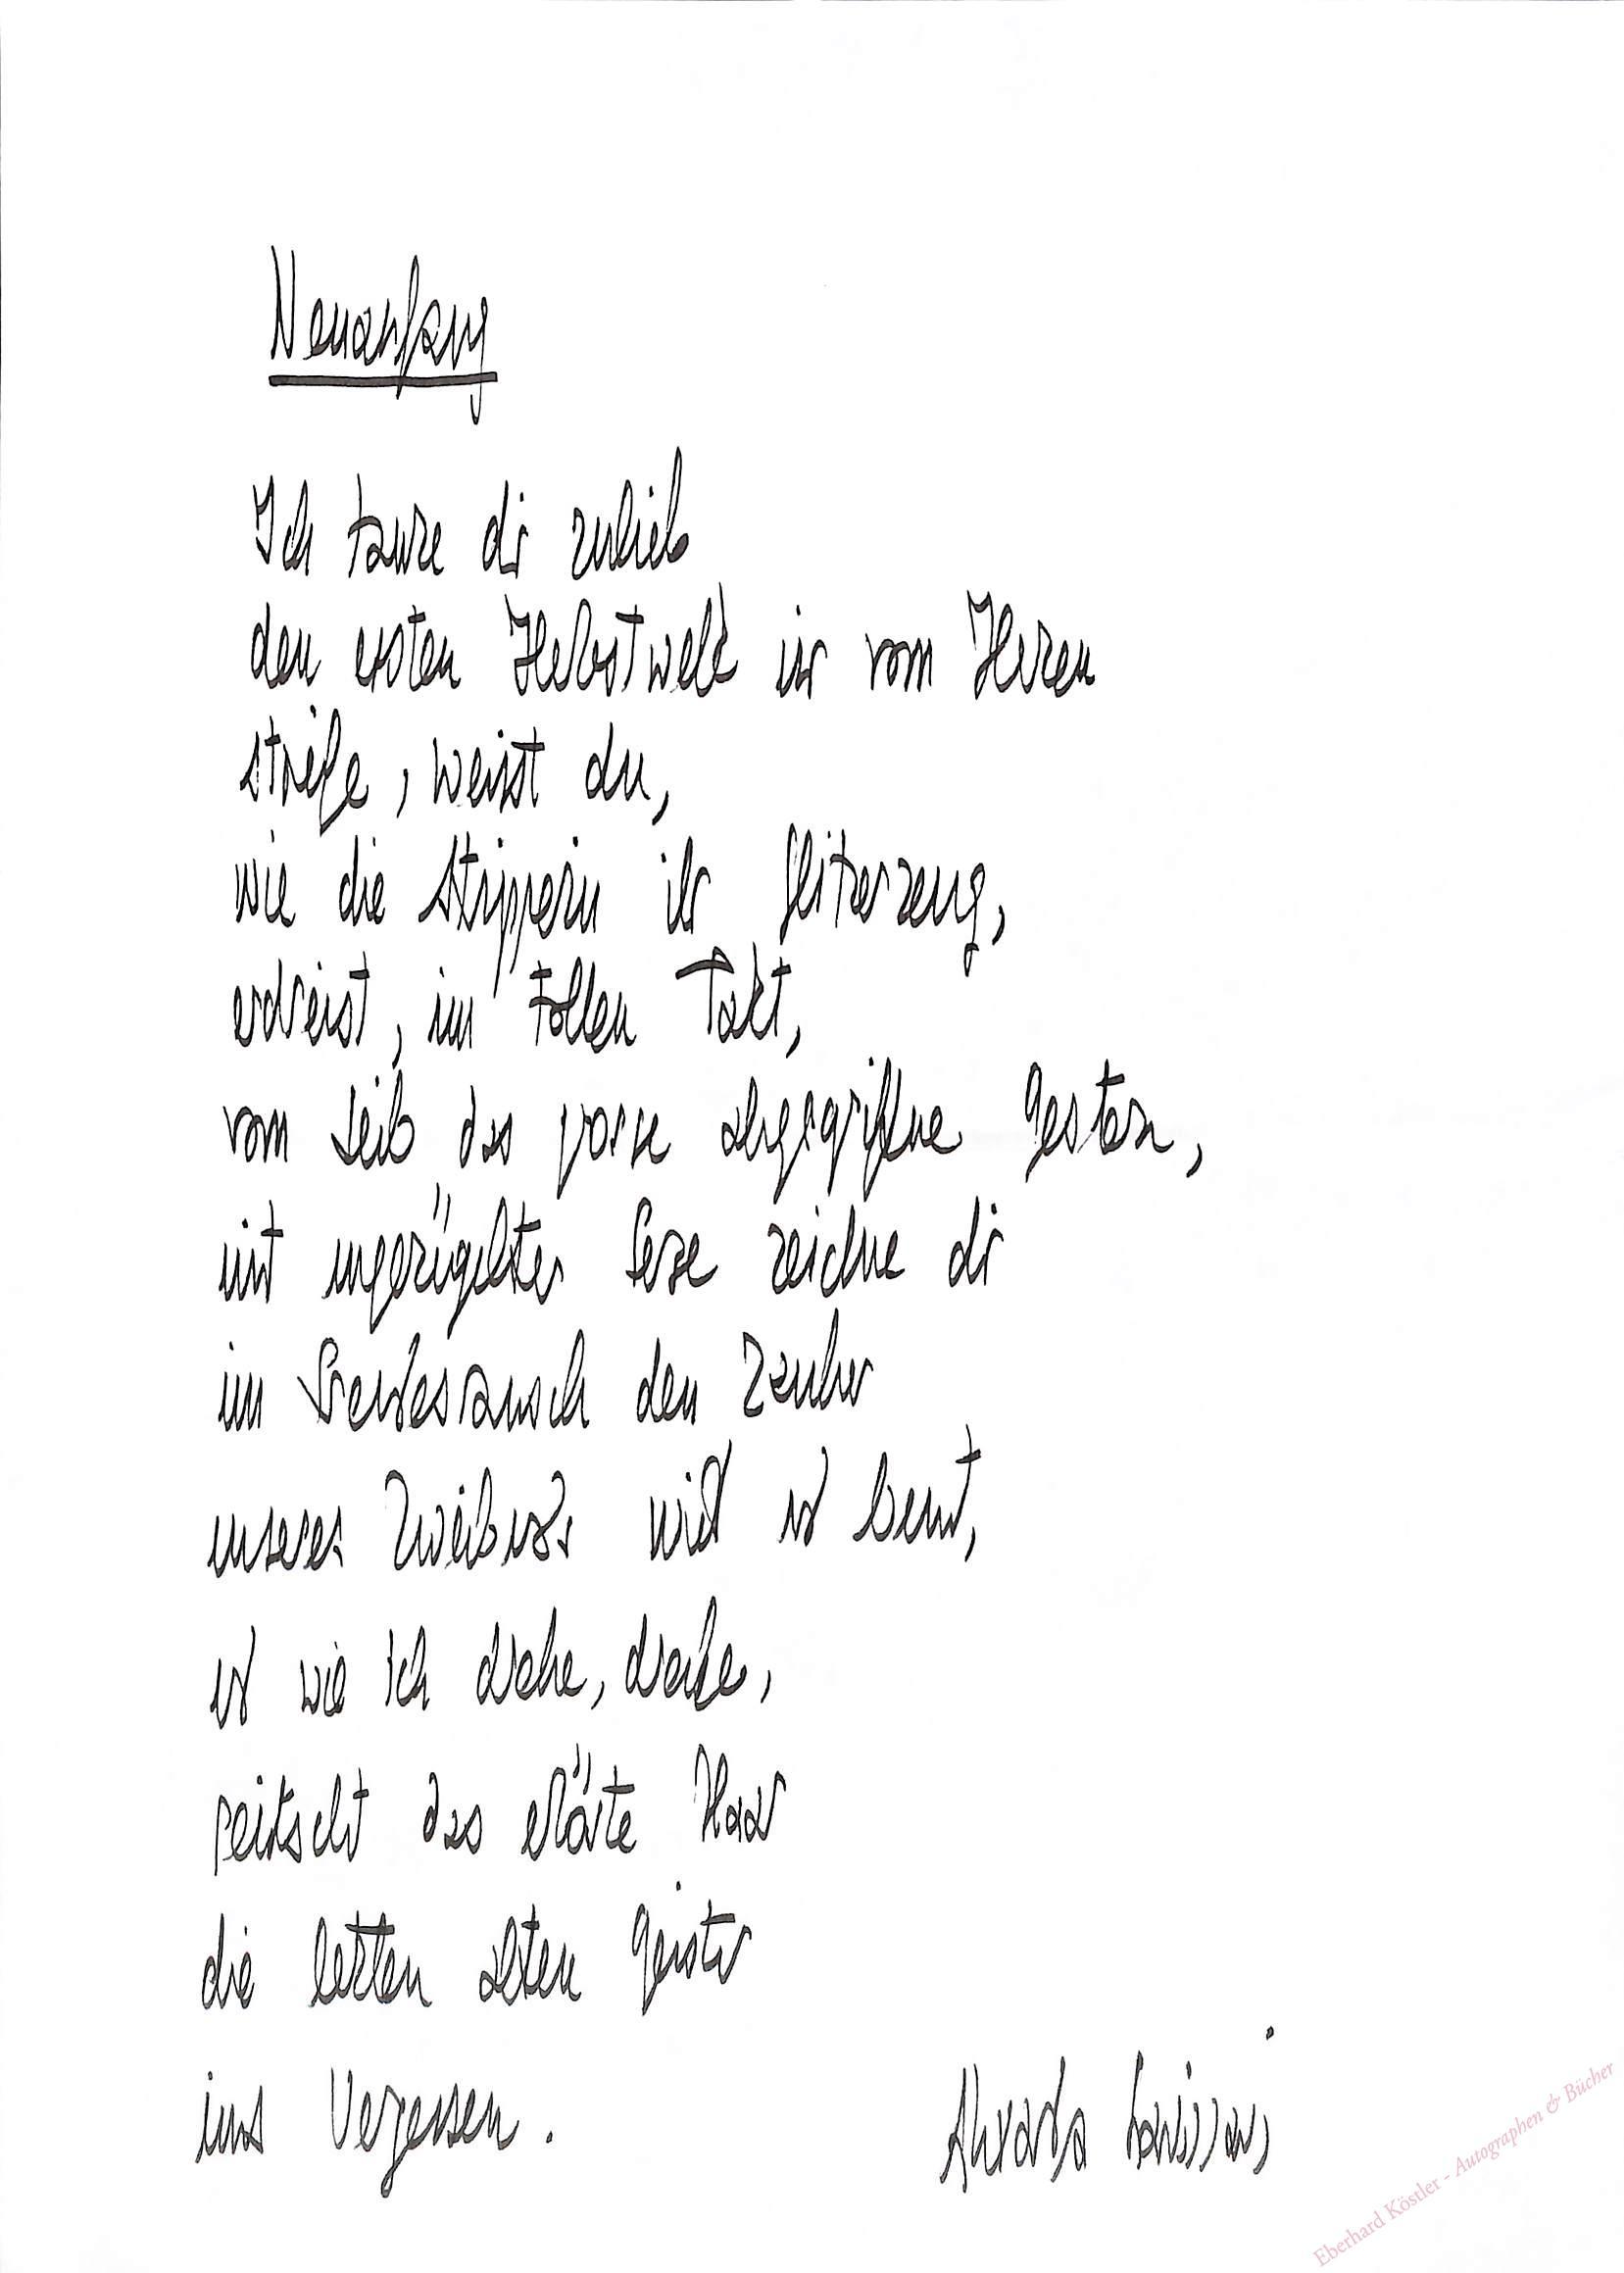 Neuanfang
Ich tanze dir zulieb
den ersten Herbstwalz ir vom Herzen
streife, weisst du,
wie die Stripperin ihr Glitzerzeug,
erdreist, im tollen Takt,
vom Leib das grosse abgegriffene Gestern,
mit ungezügelter Ferse zeichne dir
im Freudesrausch den Zauber
unseres wild und bunt,
und wie ich drehe, drehe,
peitscht das Haar
die letzten alten Geister
ins Vergessen.
Eberhard Köstler - Autographen & Bücher